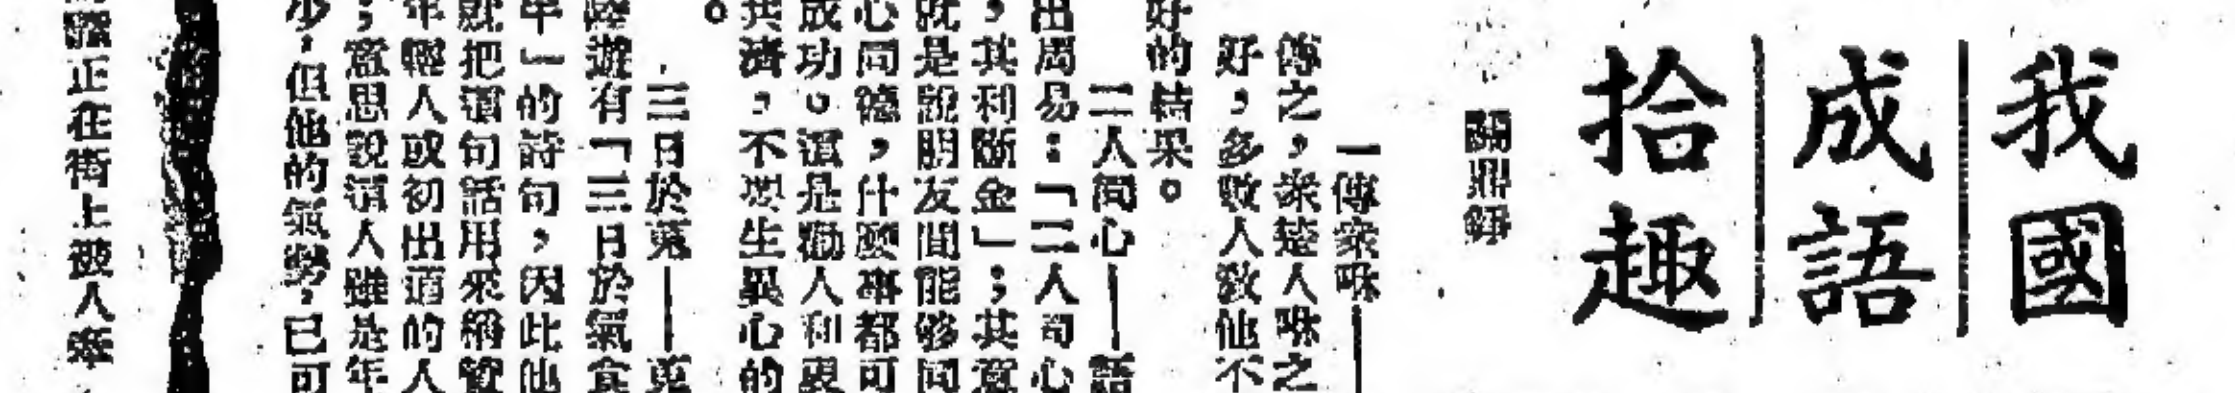 我國
成語
拾趣
關鼎錚
一傳衆咻——
傳之，衆楚人咻之
好，多數人教他不
好的結果。
二人同心——語
出周易：「二人同心
，其利斷金」；其意
就是說朋友間能够同
心同德，什麼事都可
成功。這是勸人和衷
共濟，不要生異心的
。
三日於菟——菟
陸遊有「三日於菟氣食
牛」的詩句，因此他
就把這句話用來稱贊
年輕人或初出道的人
；意思說這人雖是年
少，但他的氣勢，已可
正在街上被人牽，